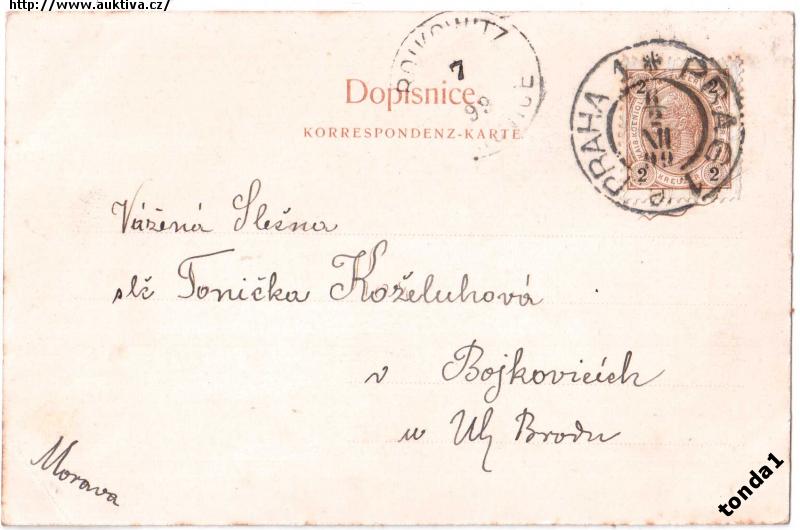 http://www.auktiva.cz/
Dopisnice.
KORRESPONDENZ-KARTE.
BOJKOWITZ
7
99
PRAHA 1 * PRAG 1
6
XII
99
2 2
2 2
KREUZER
Vážená Slečna
slč Tonička Koželuhová
v Bojkovicích
u Uh Brodu
Morava
tonda1